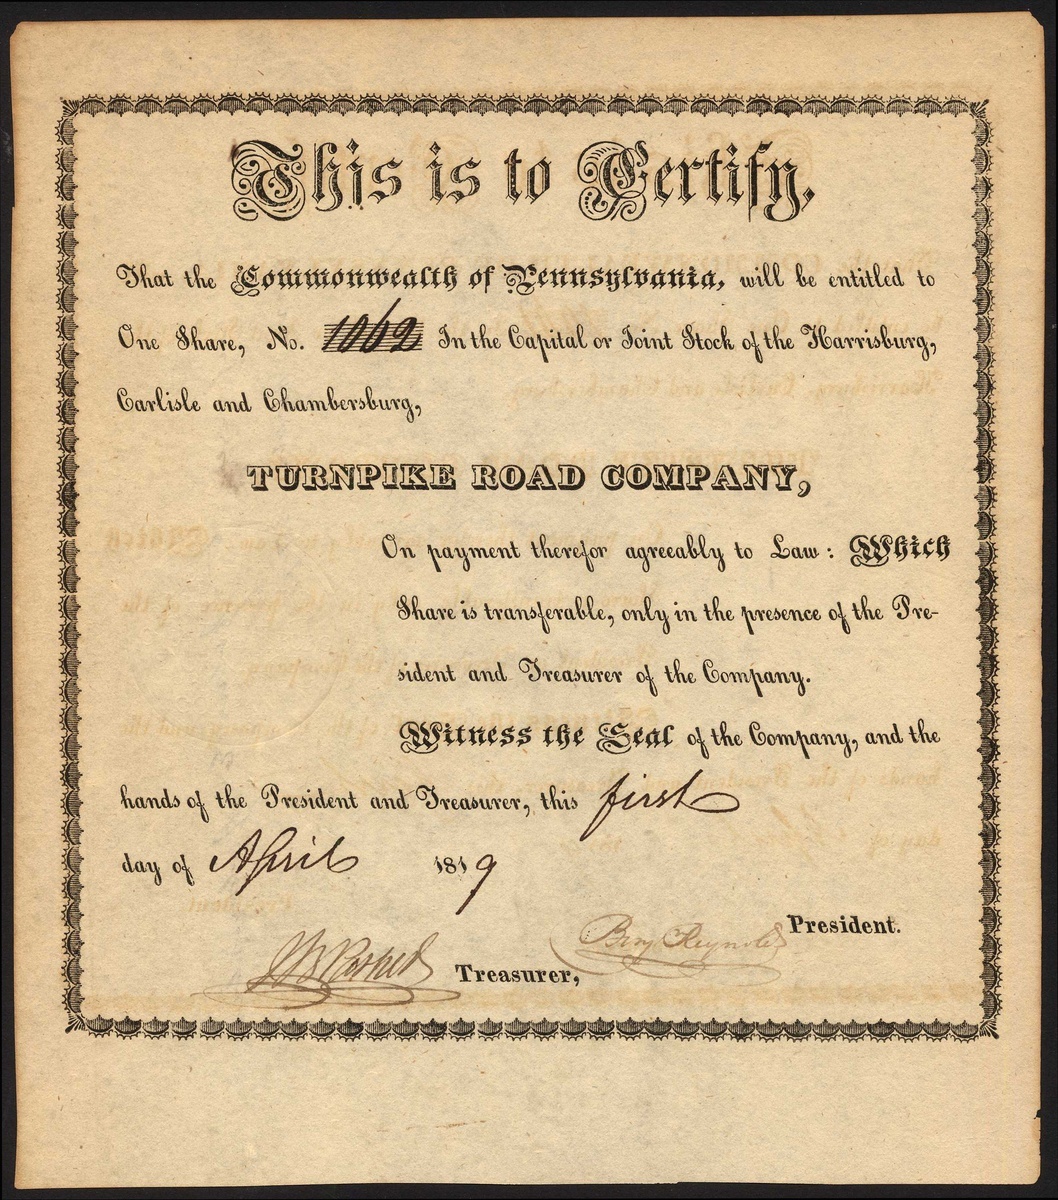 This is to Certify,
That the Commonwealth of Pennsylvania, will be entitled to
One Share, No. 1062 In the Capital or Joint Stock of the Harrisburg,
Carlisle and Chambersburg,
TURNPIKE ROAD COMPANY,
On payment therefor agreeably to Law: Which
Share is transferable, only in the presence of the Pre-
sident and Treasurer of the Company.
Witness the Seal of the Company, and the
hands of the President and Treasurer, this first
day of April 1819
Benj Reynolds President.
Treasurer,